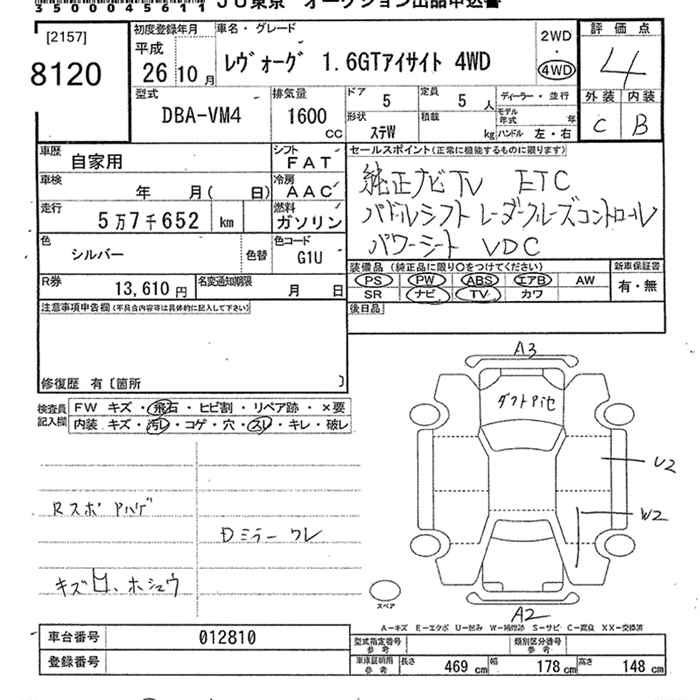 35000045811 JU東京 オークション出品申込書
[2157]
8120
初度登録年月
平成
26年10月
車名・グレード
レヴォーグ 1.6GTアイサイト 4WD
2WD
・
4WD
評価点
4
外装 内装
C B
型式
DBA-VM4
排気量
1600
CC
ドア
5
定員
5人
ディーラー・並行
モデル年式 年
形状
ステW
積載
kg
ハンドル 左・右
車歴
自家用
シフト
FAT
車検
年 月( 日)
冷房
AAC
走行
5万7千652 km
燃料
ガソリン
色
シルバー
色替
色コード
G1U
R券
13,610円
名変通知期限
月 日
セールスポイント(正常に機能するものに限ります)
純正ナビTV ETC
パドルシフト レーダークルーズコントロール
パワーシート VDC
装備品 (純正品に限り○をつけてください)
PS PW ABS エアB AW
SR ナビ TV カワ
新車保証書
有・無
後日品
注意事項申告欄(不具合内容等は具体的に記入して下さい)
修復歴 有〔箇所 〕
検査員記入欄
FW キズ・飛石・ヒビ割・リペア跡・×要
内装 キズ・汚レ・コゲ・穴・スレ・キレ・破レ
Rスポ Pハゲ
Dミラー ワレ
キズ凹、ホシュウ
A3
ダフトPセ
U2
W2
A2
スペア
A-キズ E-エクボ U-凹み W-補修跡 S-サビ C-腐食 XX-交換済
車台番号
012810
登録番号
型式指定番号
参考
類別区分番号
参考
車庫証明用
参考
長さ
469cm
幅
178cm
高さ
148cm